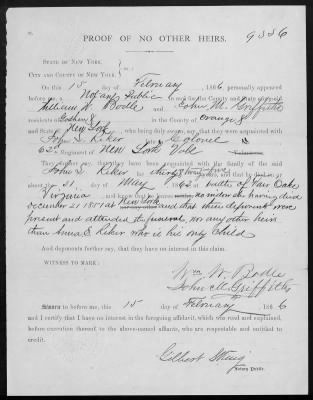 9336
PROOF OF NO OTHER HEIRS.
STATE OF NEW YORK,
CITY AND COUNTY OF NEW YORK.
On this 15 day of February 1866, personally appeared
before me a Notary Public in and for the County and State aforesaid
William W. Bodle and John M. Griffiths
residents of Goshen & in the County of Orange &
and State of New York who being duly sworn, say that they were acquainted with
John L. Riker Colonel
62d Regiment of New York Vols
They further say, that they have been acquainted with the family of the said
John L. Riker for thirty & twenty five years, and that he died on
about the 31 day of May 1862 in battle of Fair Oaks
Virginia no widow she having died
December 21 1851 at New York and that these deponents were
present and attended the funeral, nor any other heirs
than Anna E Riker who is his only Child
And deponents further say, that they have no interest in this claim.
WITNESS TO MARK:
Wm W. Bodle
John M. Griffiths
Sworn to before me, this 15 day of February 1866
and I certify that I have no interest in the foregoing affidavit, which was read and explained,
before execution thereof to the above-named affiants, who are respectable and entitled to
credit.
Gilbert
Notary Public.